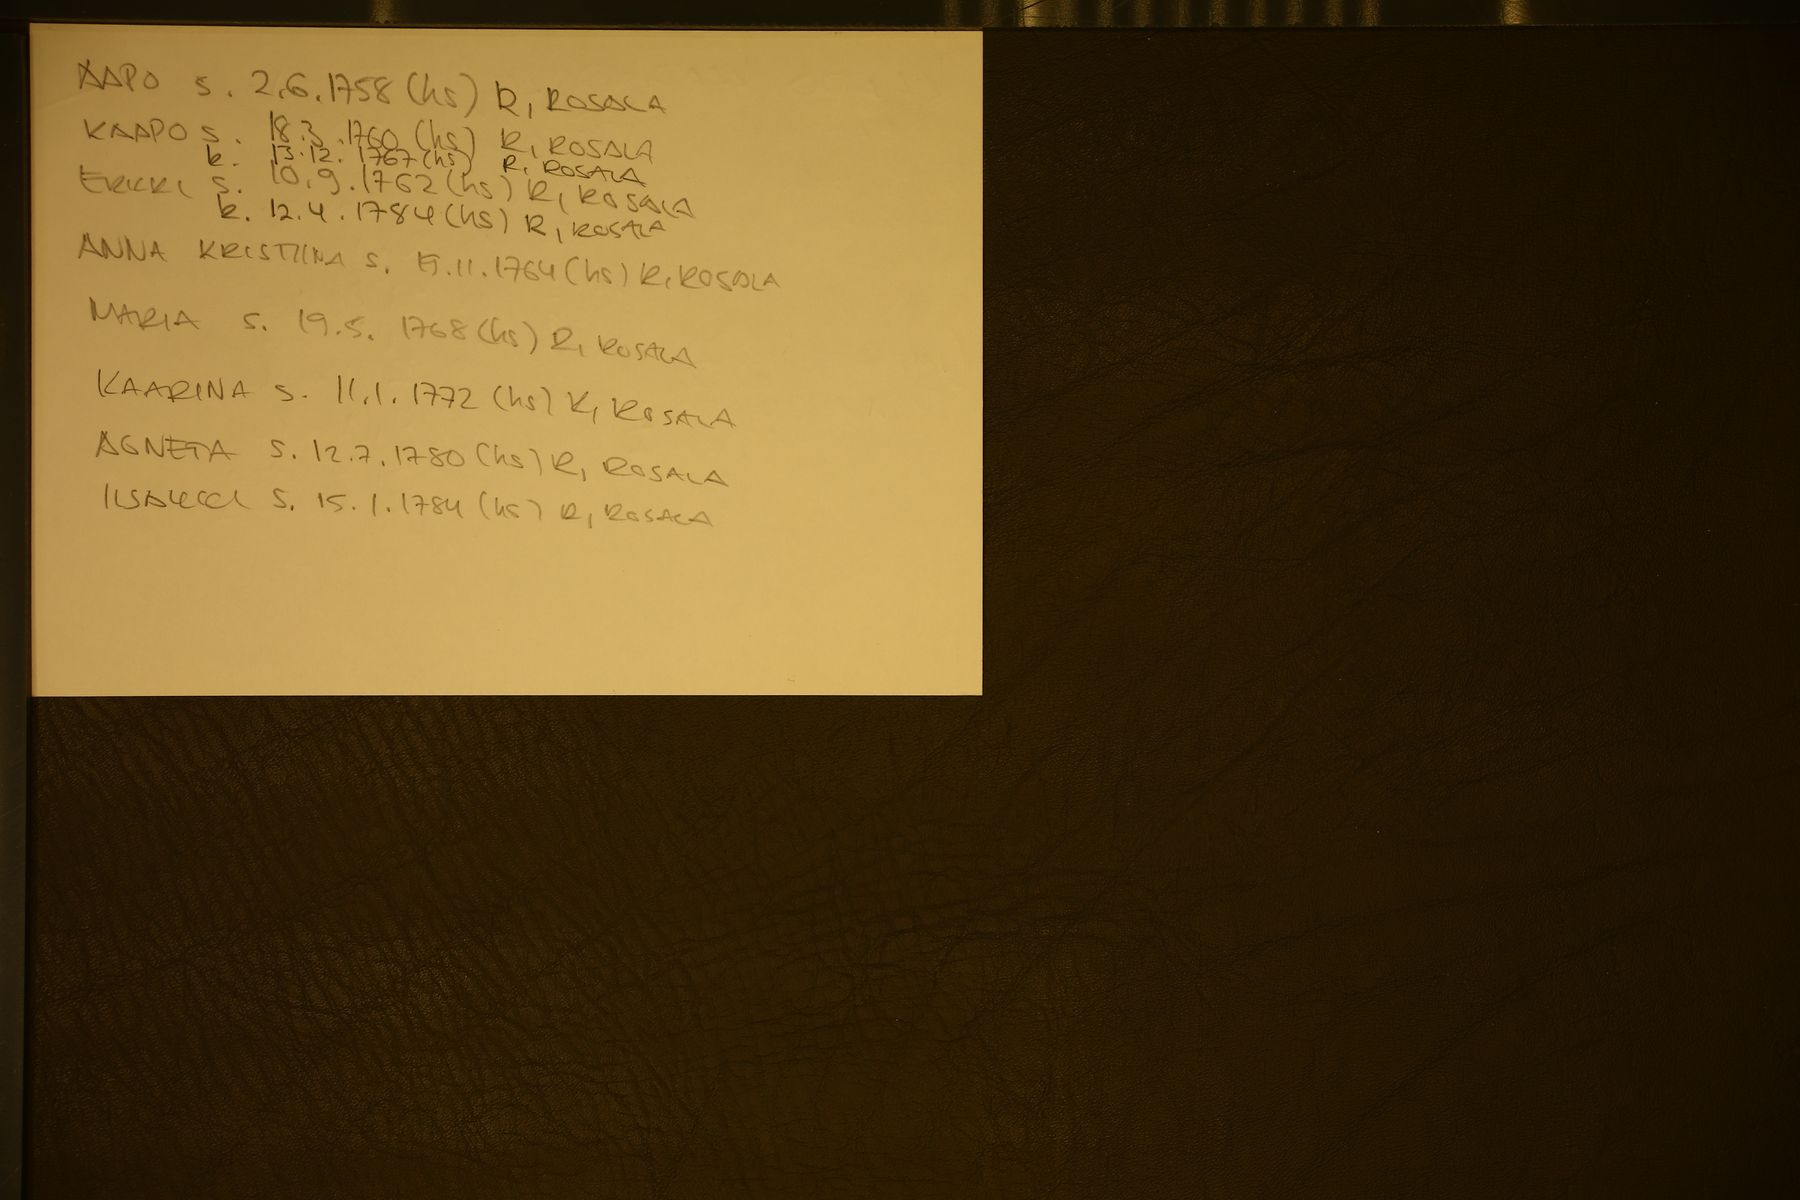 AAPO s. 2.6.1758 (hs) R, ROSALA
KAAPO s. 18.3.1760 (hs) R, ROSALA
k. 13.12.1767 (hs) R, ROSALA
ERKKI s. 10.9.1762 (hs) R, ROSALA
k. 12.4.1784 (hs) R, ROSALA
ANNA KRISTIINA s. 15.11.1764 (hs) R, ROSALA
MARIA s. 19.5.1768 (hs) R, ROSALA
KAARINA s. 11.1.1772 (hs) R, ROSALA
AGNETA s. 12.7.1780 (hs) R, ROSALA
s. 15.1.1784 (hs) R, ROSALA